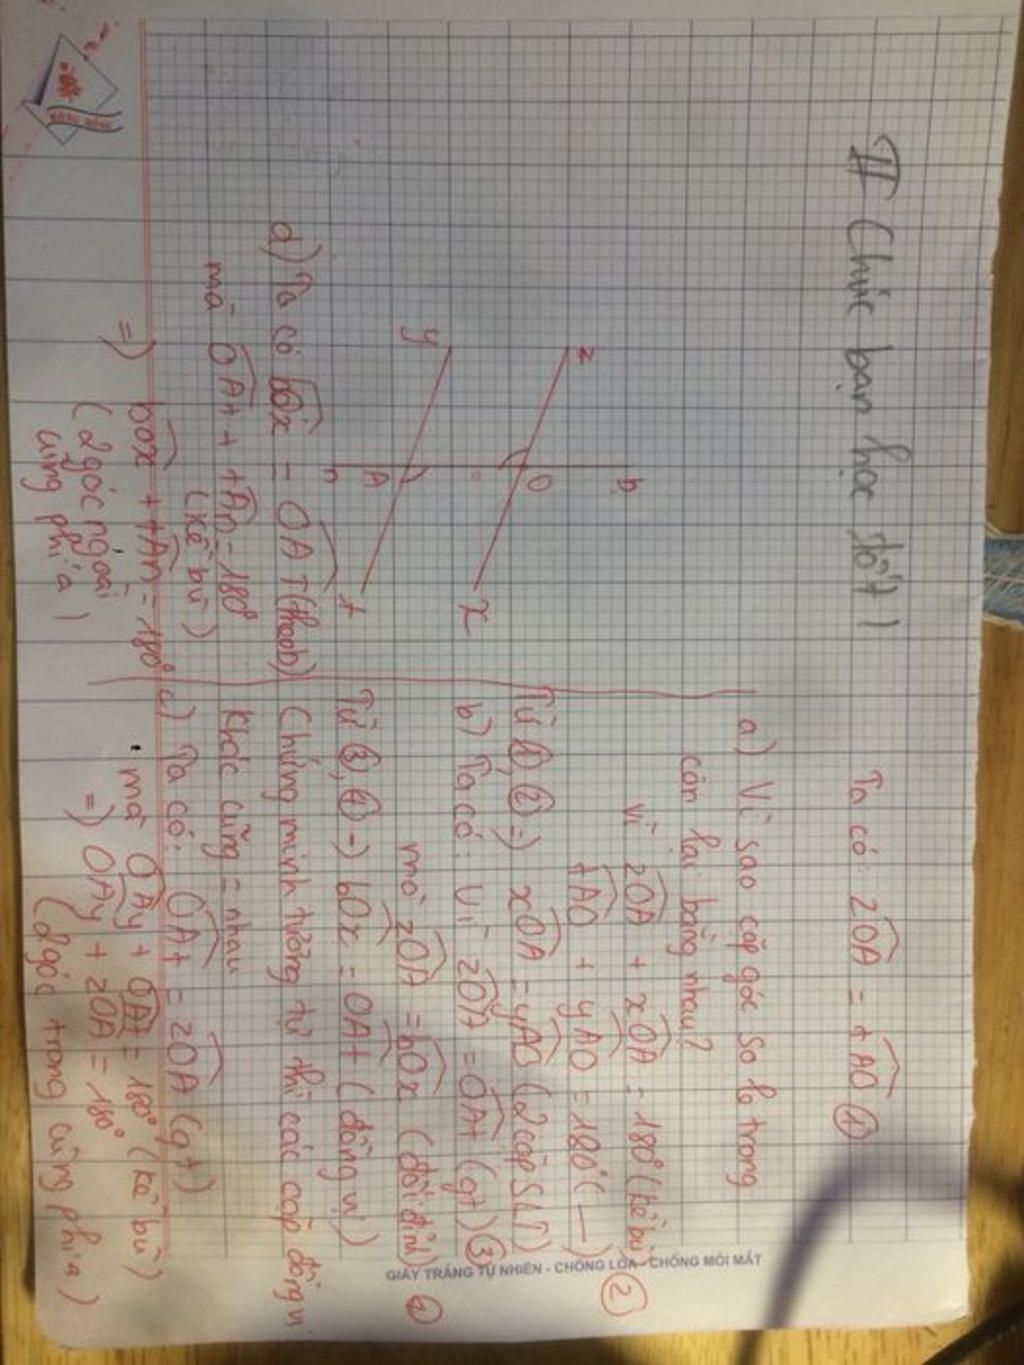 II Chúc bạn học tốt!
z
b
O
x
y
A
t
n
d) Ta có bOx = OAT (theo b)
mà OAt + tAn = 180°
(kề bù)
=) bOx + tAn = 180°
(2 góc ngoài
cùng phía)
Ta có: zOA = tAO ①
a) Vì sao cặp góc so le trong
còn lại bằng nhau?
vì zOA + xOA = 180° (kề bù)
tAO + yAO = 180° ( — ) ②
Từ ①, ② =) xOA = yAO (2 cặp SLT)
b) Ta có: Vì zOA = OAt (gt) ③
mà zOA = bOx (đối đỉnh) ④
Từ ③, ④ -) bOx = OAt (đồng vị)
Chứng minh tương tự thì các cặp đồng vị
khác cũng = nhau
c) Ta có: OAt = zOA (gt)
mà OAy + OAt = 180° (kề bù)
=) OAy + zOA = 180°
(2 góc trong cùng phía)
GIẤY TRẮNG TỰ NHIÊN - CHỐNG LÓA - CHỐNG MỎI MẮT